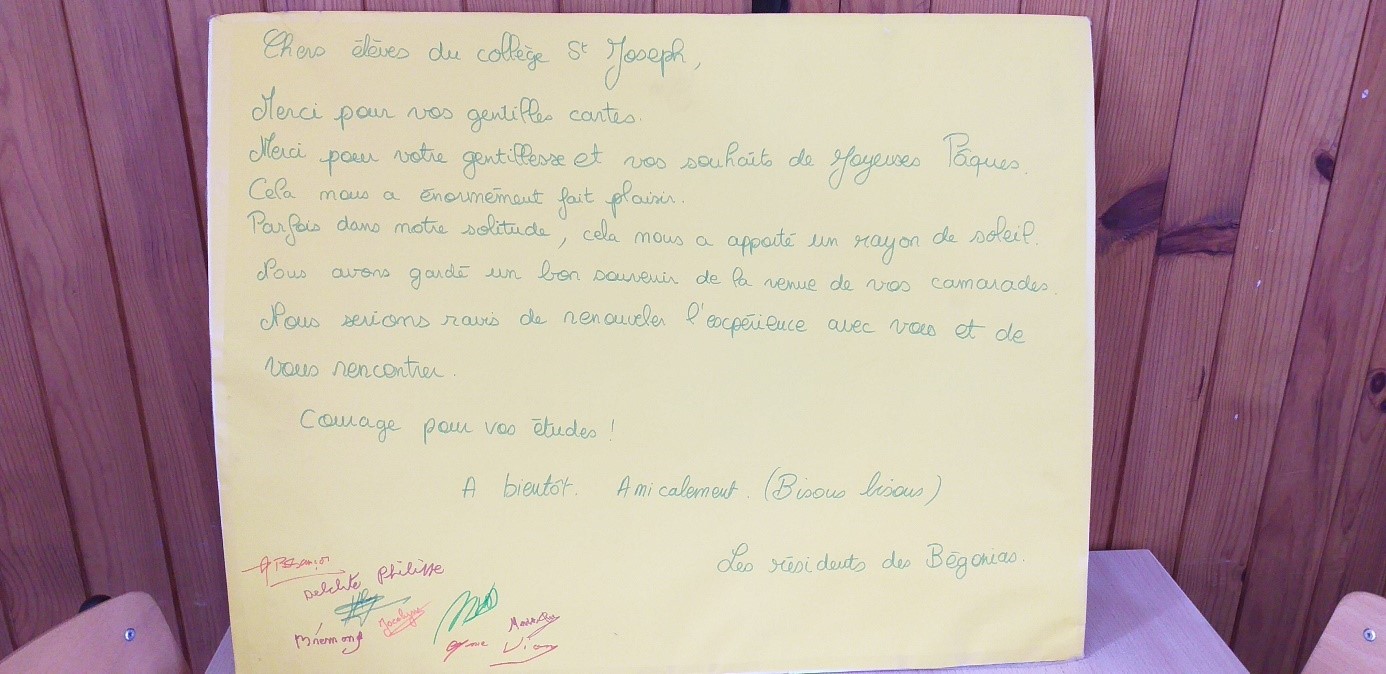 Chers élèves du collège St Joseph,
Merci pour vos gentilles cartes.
Merci pour votre gentillesse et vos souhaits de Joyeuses Pâques.
Cela nous a énormément fait plaisir.
Parfois dans notre solitude, cela nous a apporté un rayon de soleil.
Nous avons gardé un bon souvenir de la venue de vos camarades.
Nous serions ravis de renouveler l'expérience avec vous et de
vous rencontrer.
Courage pour vos études !
A bientôt. Amicalement. (Bisous bisous)
Les résidents des Bégonias.
Philippe
Jocelyne